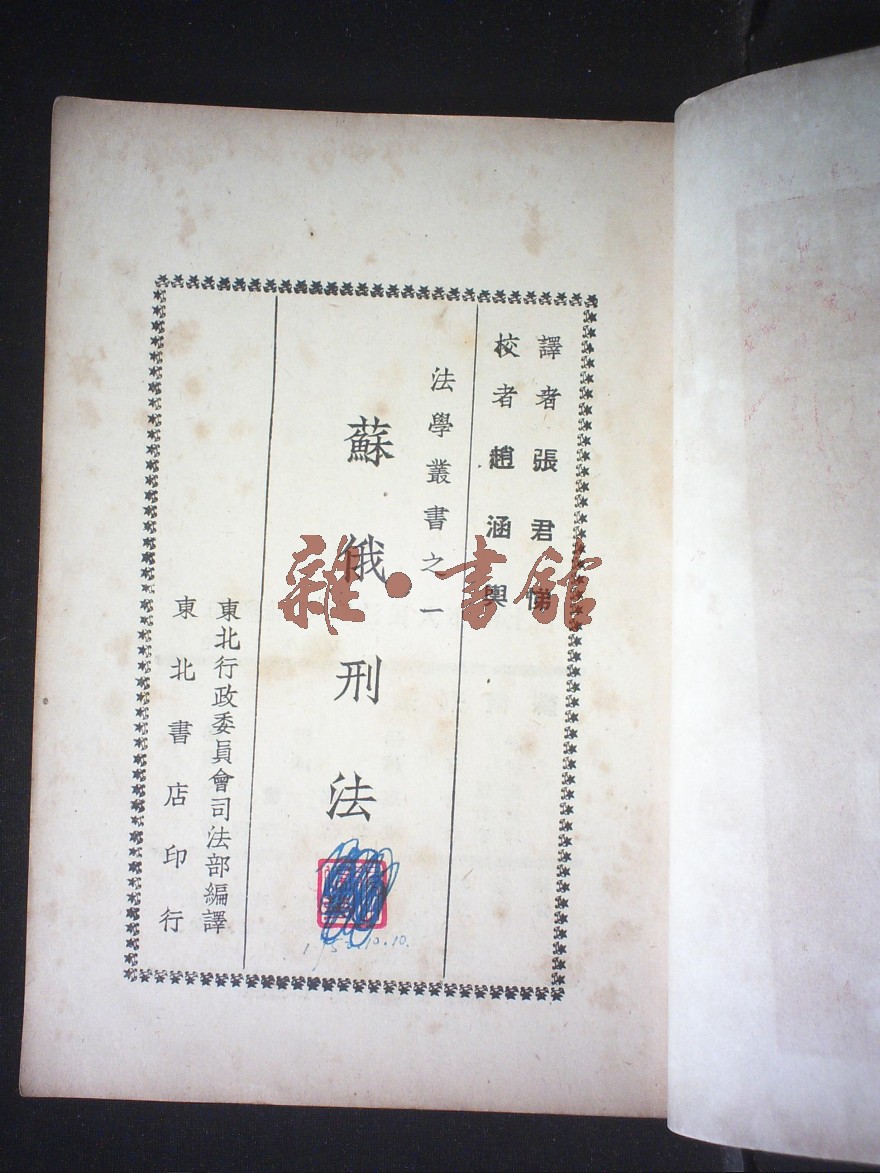 譯者 張君悌
校者 趙涵輿
法學叢書之一
蘇俄刑法
東北行政委員會司法部編譯
東北書店印行
雜·書館